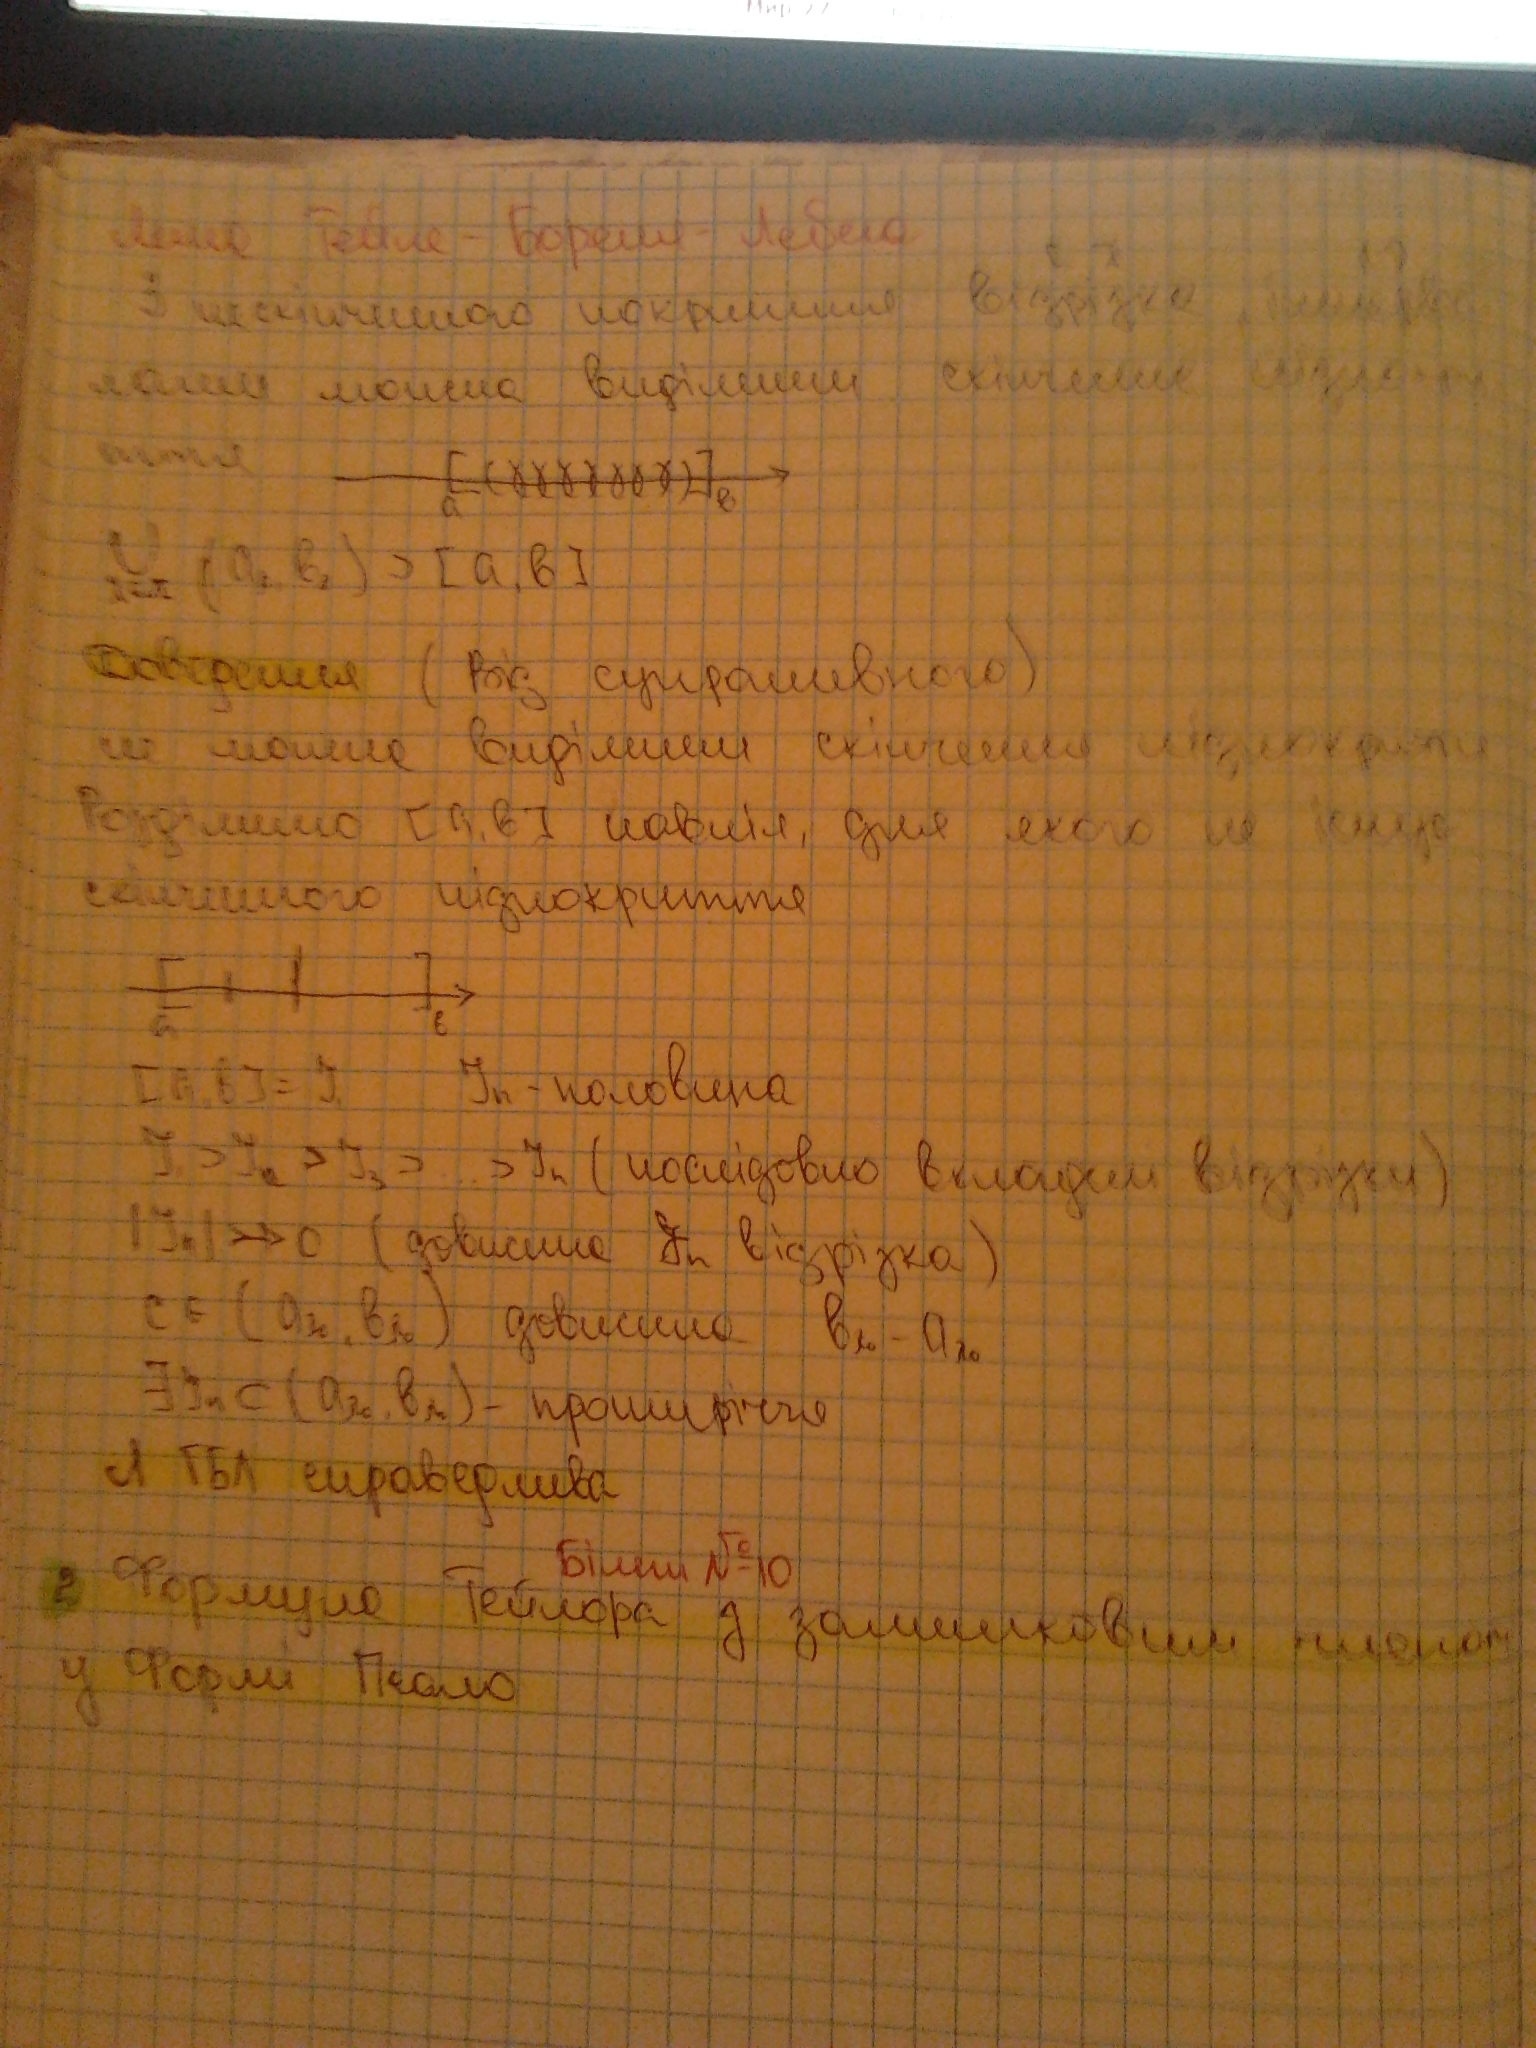 Лема Гейне - Бореля - Лебега
З нескінченного покриття відрізка інтерва
лами можна виділити скінченне підпокри
ття
[ ( )( )( )( )( )( ) ]
a b
∪ (aλ, bλ) ⊃ [a, b]
Доведення (Від супротивного)
не можна виділити скінчення підпокриття
Розділимо [a, b] навпіл, для якого не існує
скінченного підпокриття
[ ]
a b
[a, b] = J₁ Jn - половина
J₁ ⊃ J₂ ⊃ J₃ ⊃ ... ⊃ Jn (послідовно вкладені відрізки)
|Jn| → 0 (довжина Jn відрізка)
c ∈ (aλ₀, bλ₀) довжина bλ₀ - aλ₀
∃ Jn ⊂ (aλ₀, bλ₀) - протиріччя
Л ГБЛ справедлива
Білет №10
2 Формула Тейлора з залишковим членом
у формі Пеано